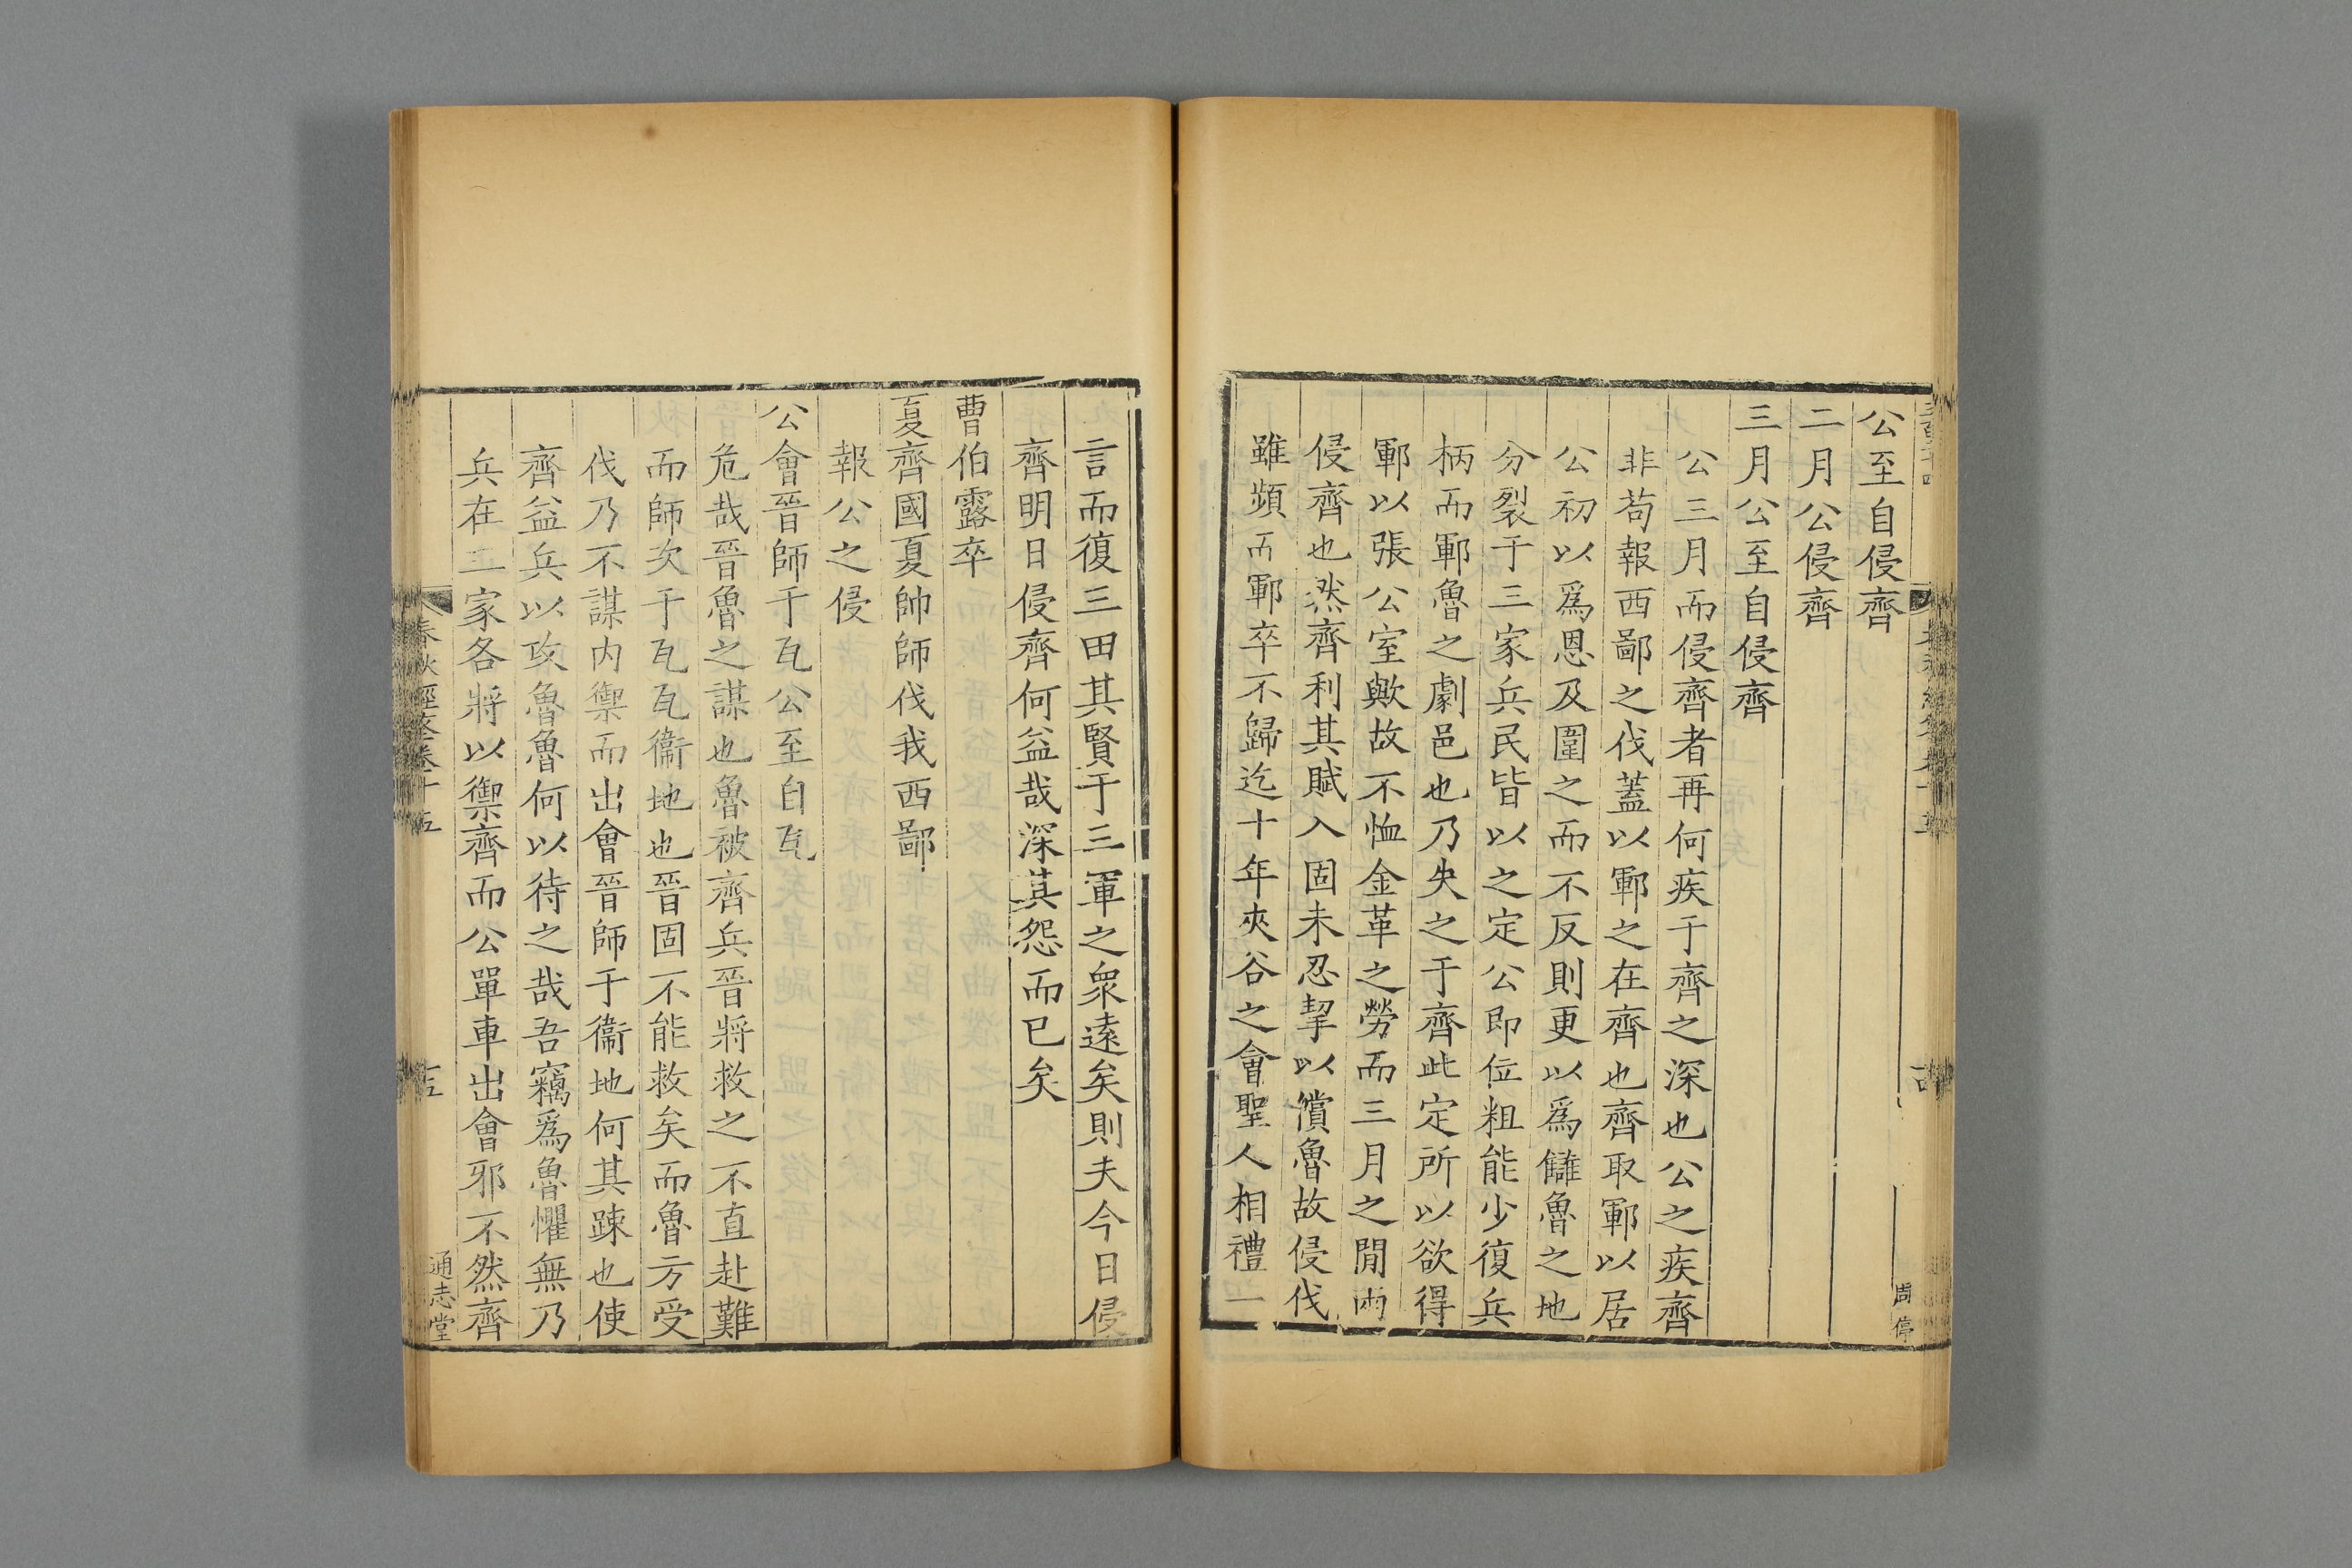 公至自侵齊
二月公侵齊
三月公至自侵齊
公三月而侵齊者再何疾于齊之深也公之疾齊
非苟報西鄙之伐蓋以鄆之在齊也齊取鄆以居
公初以爲恩及圍之而不反則更以爲讎魯之地
分裂于三家兵民皆以之定公即位粗能少復兵
柄而鄆魯之劇邑也乃失之于齊此定所以欲得
鄆以張公室歟故不恤金革之勞而三月之閒兩
侵齊也然齊利其賦入固未忍挈以償魯故侵伐
雖頻而鄆卒不歸迄十年夾谷之會聖人相禮一
周停
言而復三田其賢于三軍之衆遠矣則夫今日侵
齊明日侵齊何益哉深其怨而已矣
曹伯露卒
夏齊國夏帥師伐我西鄙
報公之侵
公會晉師于瓦公至自瓦
危哉晉魯之謀也魯被齊兵晉將救之不直赴難
而師次于瓦瓦衞地也晉固不能救矣而魯方受
伐乃不謀内禦而出會晉師于衞地何其踈也使
齊益兵以攻魯魯何以待之哉吾竊爲魯懼無乃
兵在二家各將以禦齊而公單車出會邪不然齊
春秋經筌卷十五
十五
通志堂